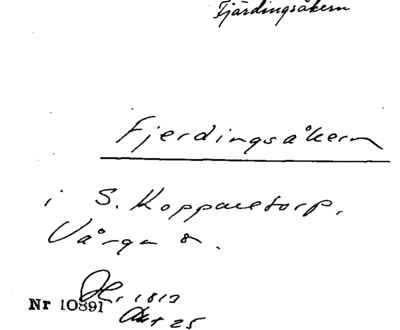 Fjärdingsåkern
Fjerdingsåkern
i S. Kopparetorp.
Vånga
1812
Nr 10891
Akt 25